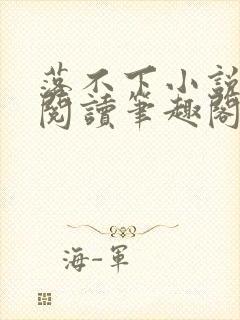 落不下小説
閱讀筆趣閣
海-軍